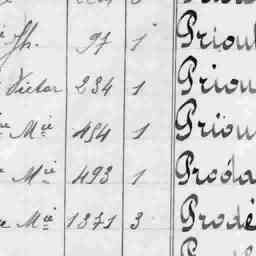 Jh. 97 1 Priou
Victor 234 1 Priou
Mie 454 1 Priou
Mie 493 1 Proda
Mie 1371 3 Prodé